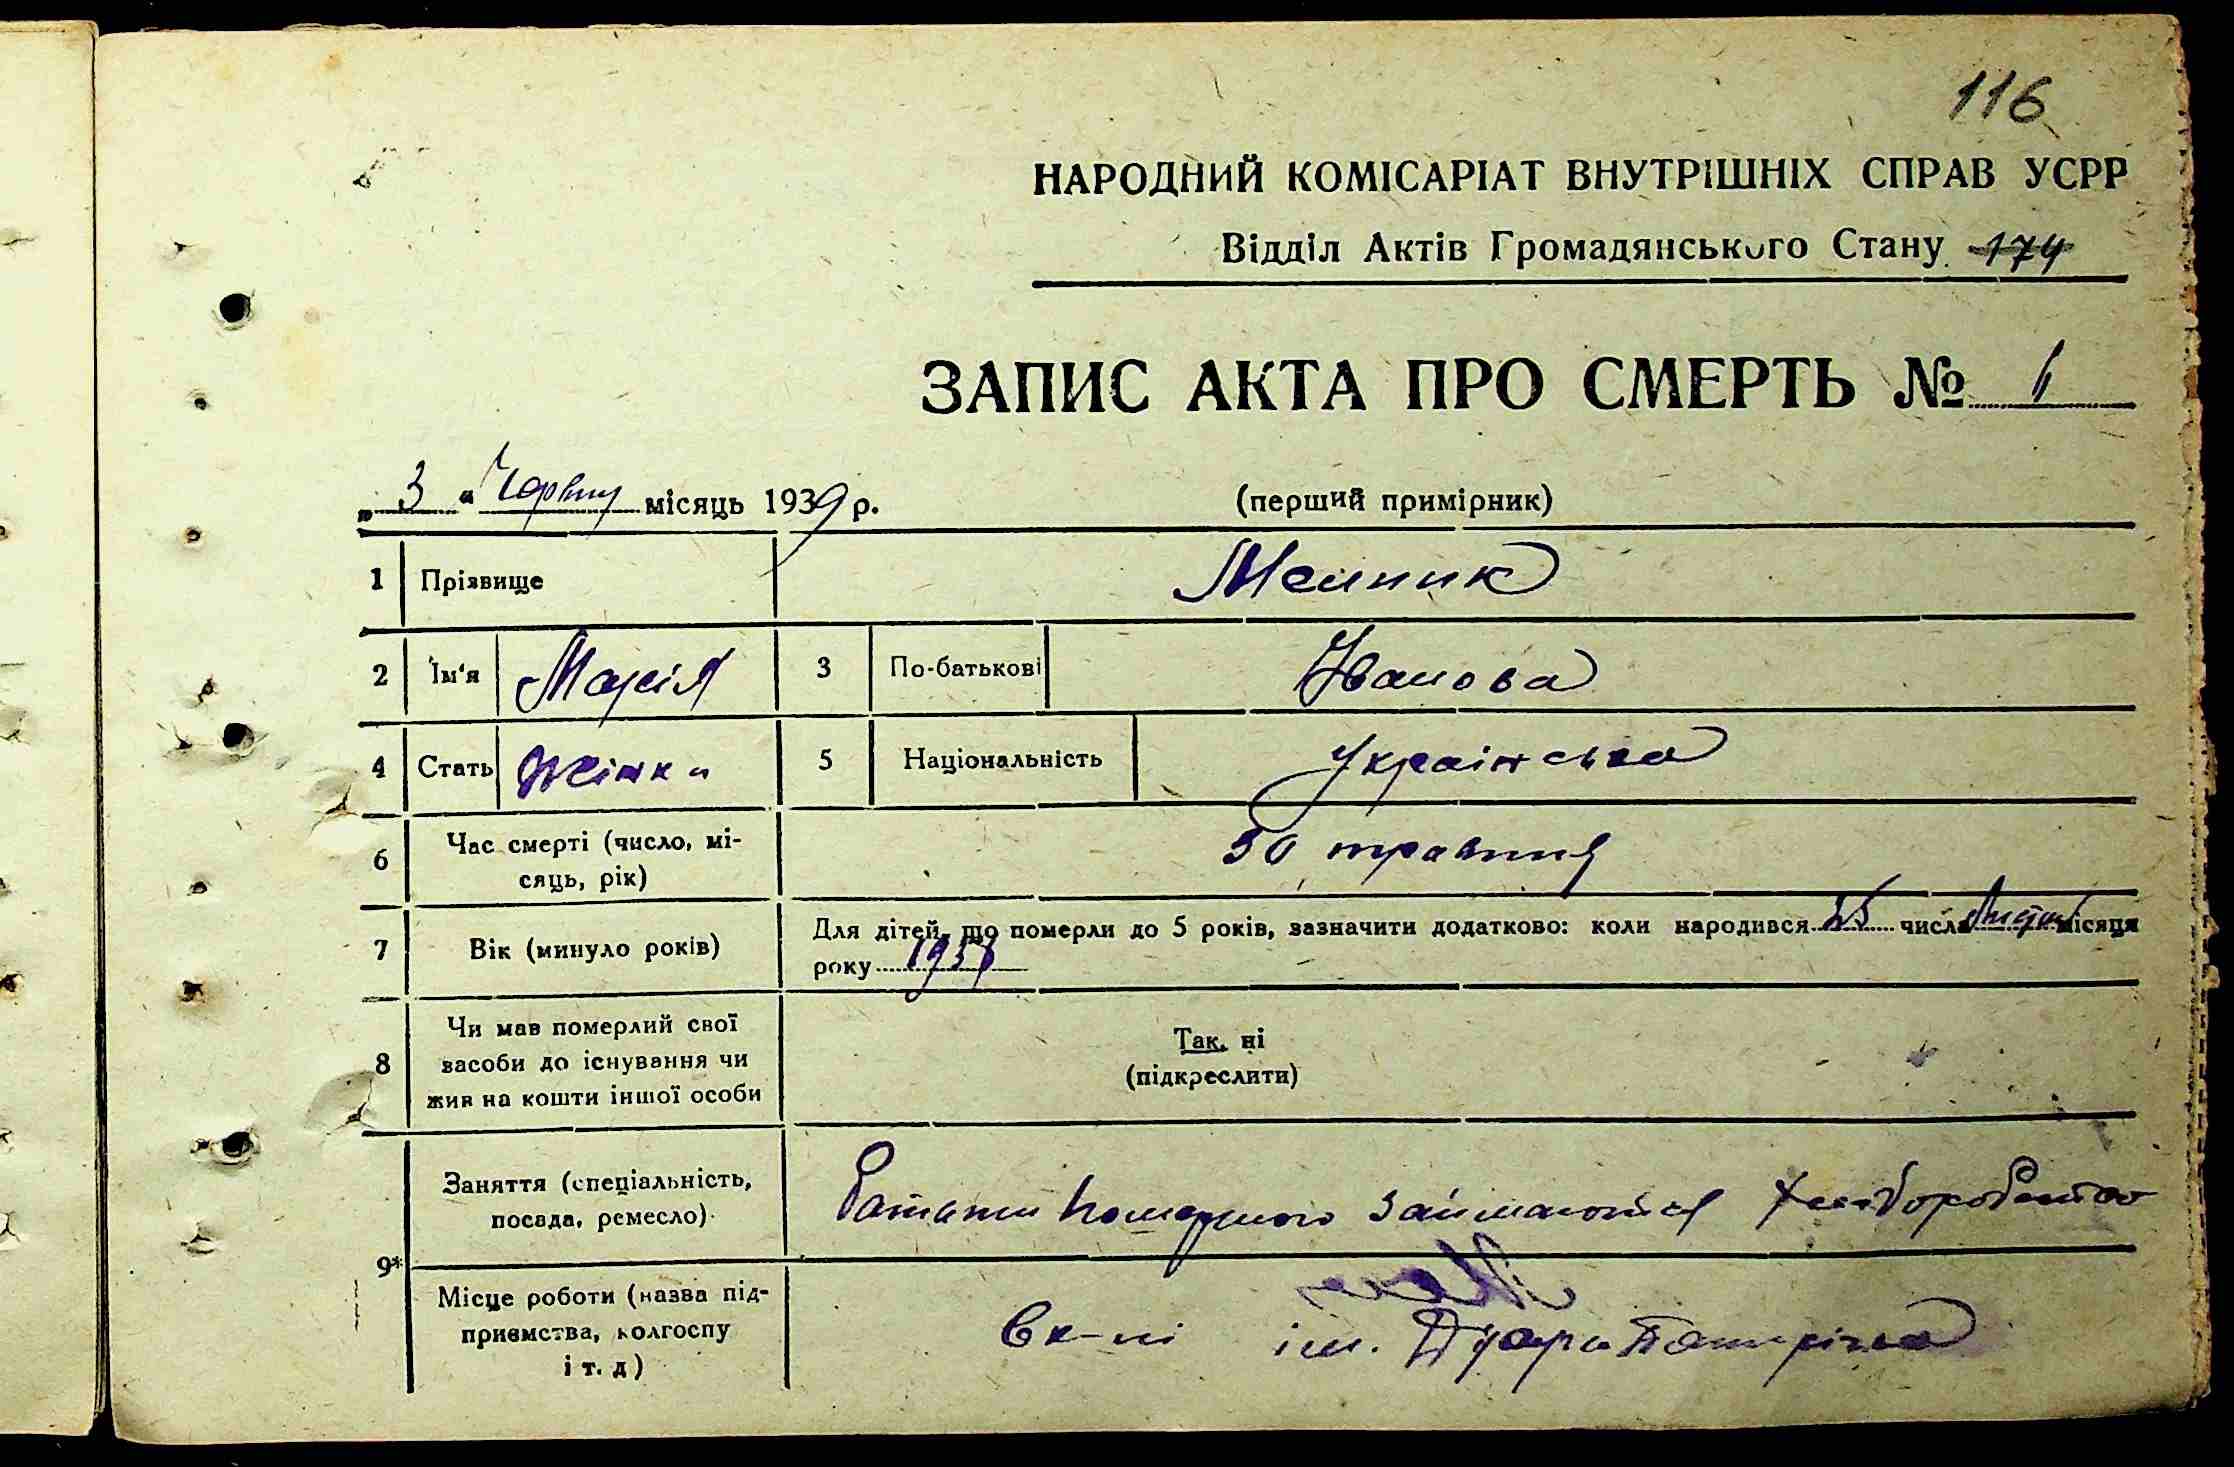 116
НАРОДНИЙ КОМІСАРІАТ ВНУТРІШНІХ СПРАВ УСРР
Відділ Актів Громадянського Стану 174
ЗАПИС АКТА ПРО СМЕРТЬ № 6
„ 3 “ Червня місяць 1939 р. (перший примірник)
1 Прізвище Мельник
2 Ім'я Марія 3 По-батькові Іванова
4 Стать Жінка 5 Національність Українська
6 Час смерті (число, мі-
сяць, рік) 30 травня
7 Вік (минуло років) Для дітей, що померли до 5 років, зазначити додатково: коли народився числа місяця
року 1938
8 Чи мав померлий свої
засоби до існування чи
жив на кошти іншої особи
Так. ні
(підкреслити)
9*
Заняття (спеціальність,
посада, ремесло) Батьки померлого займаються хліборобство
Місце роботи (назва під-
приємства, колгоспу
і т. д) В к-пі ім.